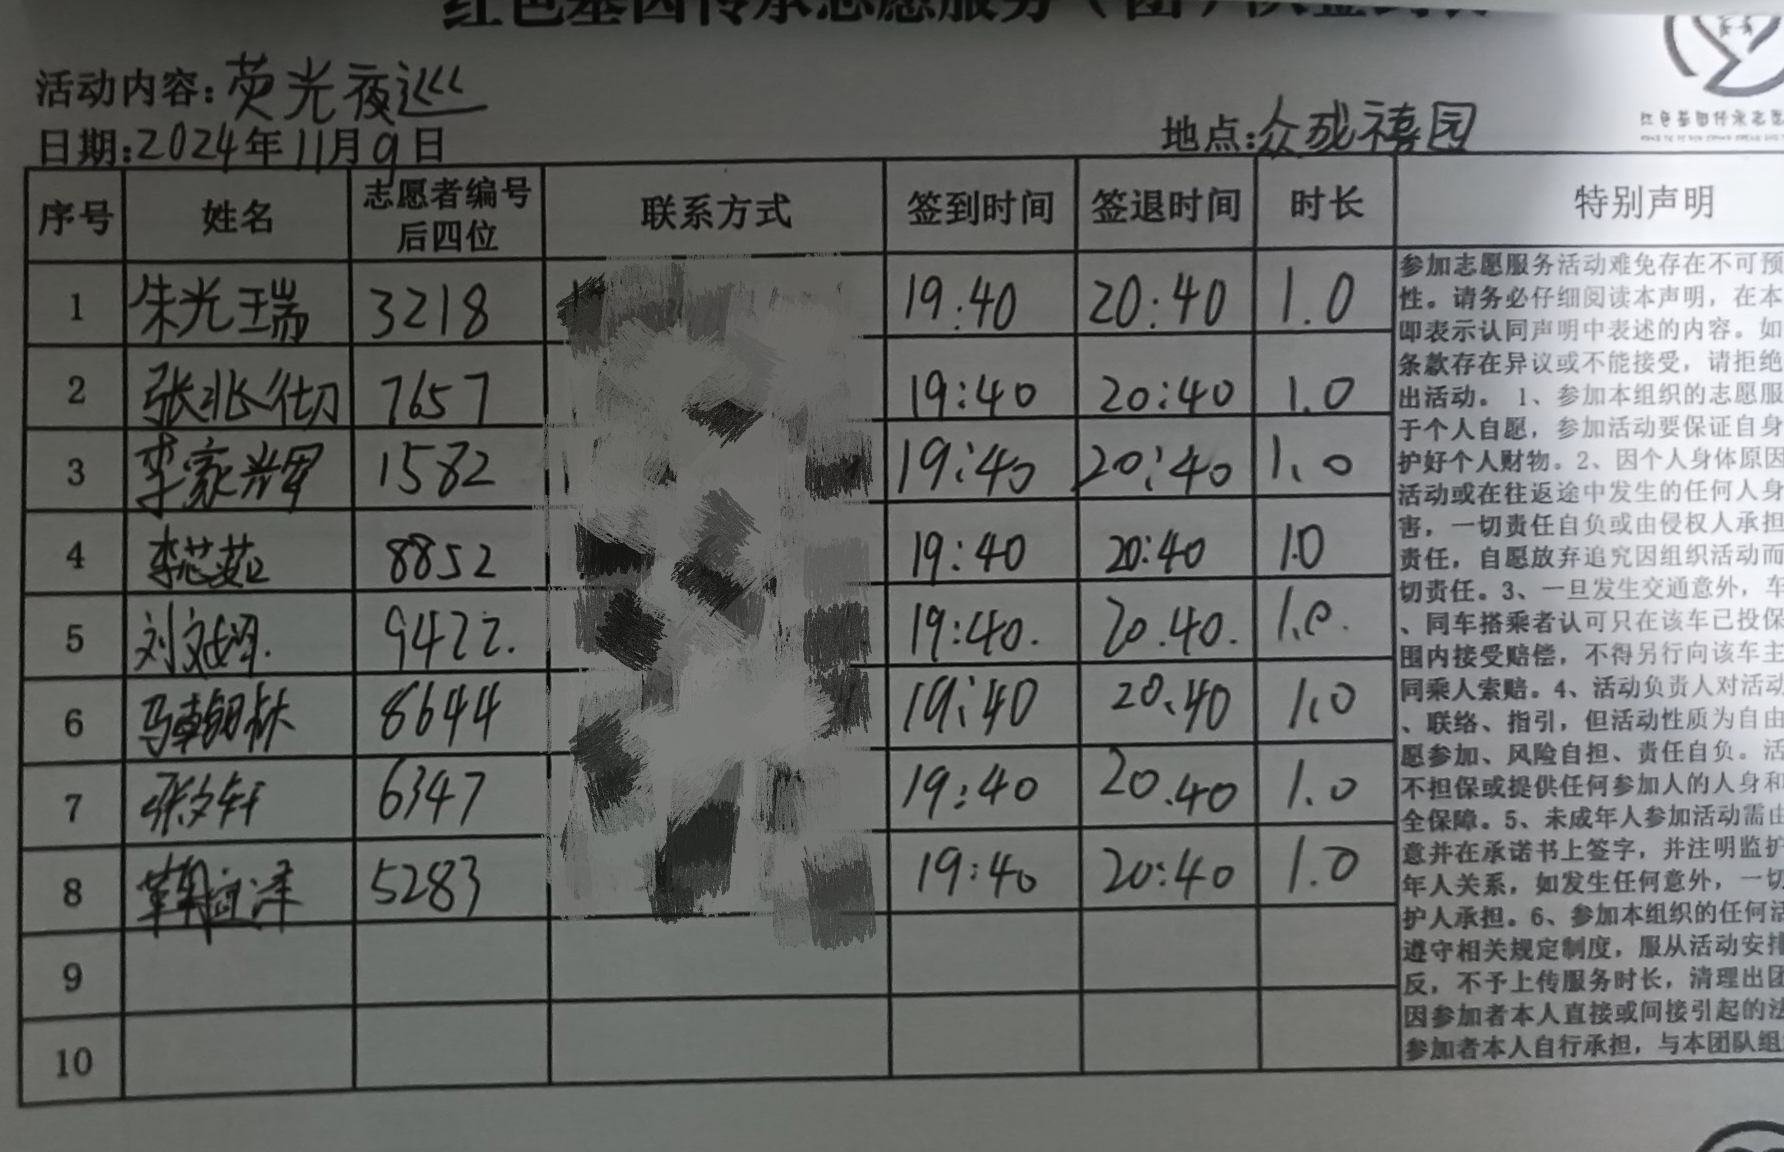 活动内容:荧光夜巡
日期:2024年11月9日
地点:众成禧园
序号 姓名 志愿者编号后四位 联系方式 签到时间 签退时间 时长 特别声明
1 朱光瑞 3218 19:40 20:40 1.0
2 张兆仞 7657 19:40 20:40 1.0
3 李家辉 1582 19:40 20:40 1.0
4 李芯茹 8852 19:40 20:40 1.0
5 刘 9422. 19:40. 20.40. 1.0.
6 马 8644 19:40 20.40 1.0
7 张文轩 6347 19:40 20.40 1.0
8 5283 19:40 20:40 1.0
9
10
参加志愿服务活动难免存在不可预
性。请务必仔细阅读本声明，在本
即表示认同声明中表述的内容。如
条款存在异议或不能接受，请拒绝
出活动。 1、参加本组织的志愿服
于个人自愿，参加活动要保证自身
护好个人财物。2、因个人身体原因
活动或在往返途中发生的任何人身
害，一切责任自负或由侵权人承担
责任，自愿放弃追究因组织活动而
切责任。3、一旦发生交通意外，车
、同车搭乘者认可只在该车已投保
围内接受赔偿，不得另行向该车主
同乘人索赔。4、活动负责人对活动
、联络、指引，但活动性质为自由
愿参加、风险自担、责任自负。活
不担保或提供任何参加人的人身和
全保障。5、未成年人参加活动需由
意并在承诺书上签字，并注明监护
年人关系，如发生任何意外，一切
护人承担。6、参加本组织的任何活
遵守相关规定制度，服从活动安排
反，不予上传服务时长，清理出团
因参加者本人直接或间接引起的法
参加者本人自行承担，与本团队组